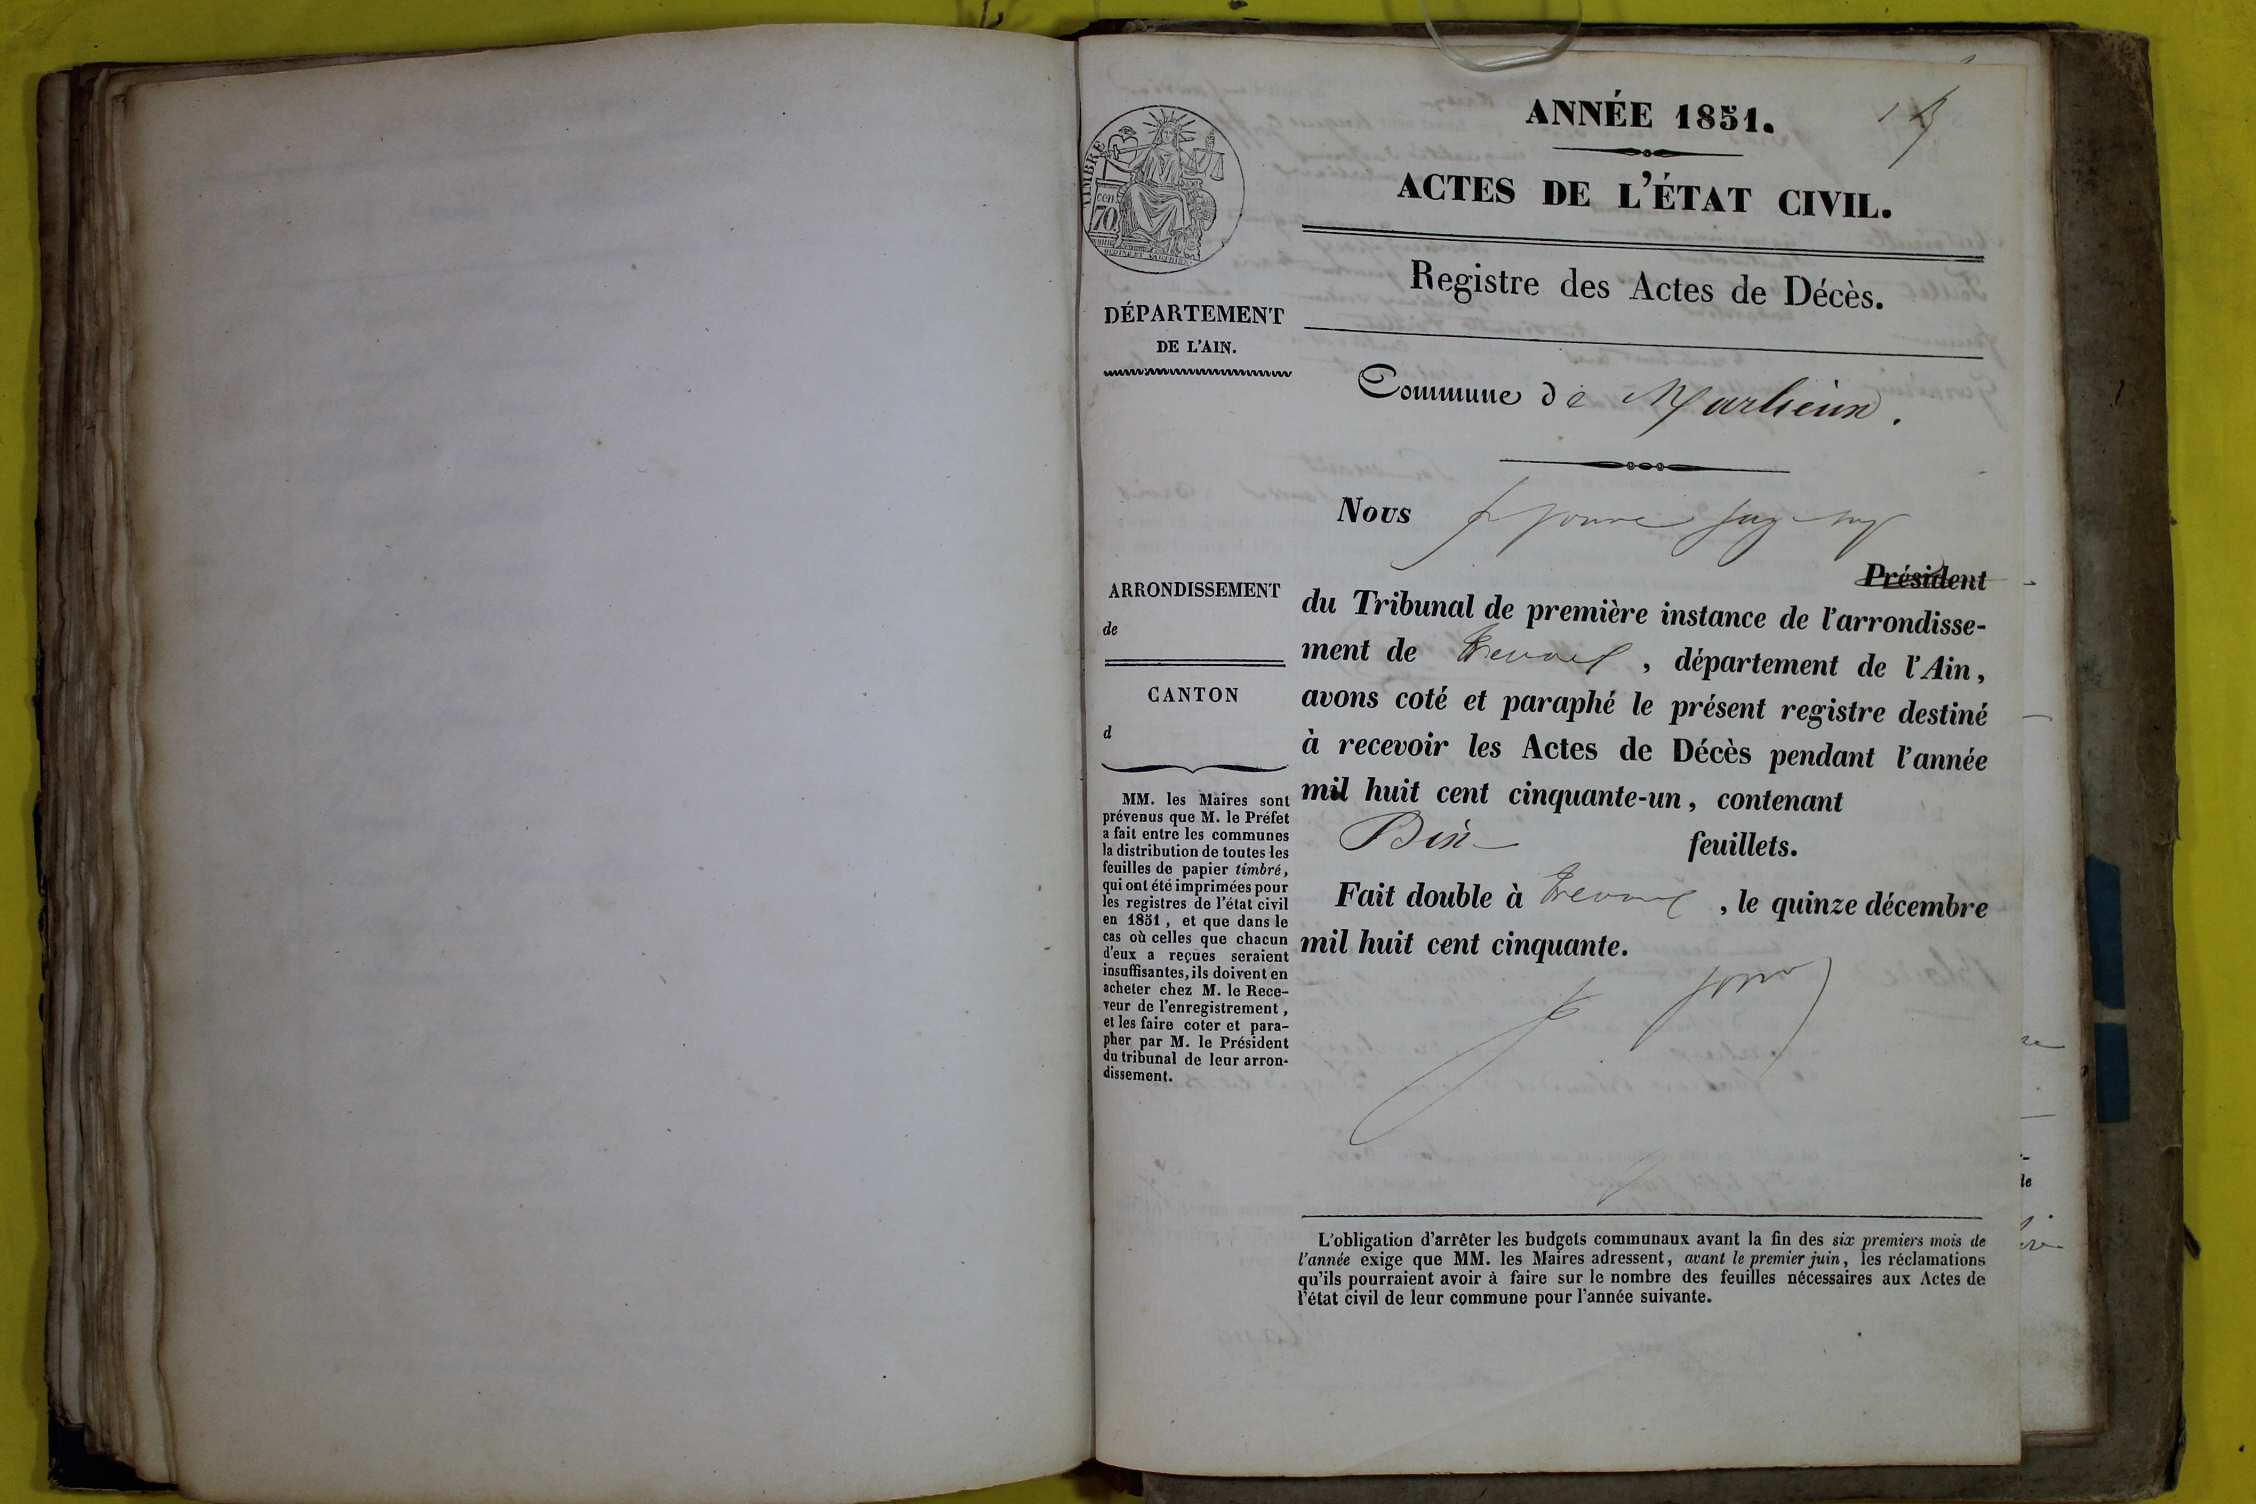 ANNÉE 1851.
ACTES DE L'ÉTAT CIVIL.
Registre des Actes de Décès.
TIMBRE
cen.
70
DÉPARTEMENT
DE L'AIN.
Commune de Marlieux.
Nous
Président
du Tribunal de première instance de l'arrondisse-
ment de Trevoux, département de l'Ain,
avons coté et paraphé le présent registre destiné
à recevoir les Actes de Décès pendant l'année
mil huit cent cinquante-un, contenant
Dix feuillets.
Fait double à Trevoux, le quinze décembre
mil huit cent cinquante.
ARRONDISSEMENT
de
CANTON
d
MM. les Maires sont
prévenus que M. le Préfet
a fait entre les communes
la distribution de toutes les
feuilles de papier timbré,
qui ont été imprimées pour
les registres de l'état civil
en 1851, et que dans le
cas où celles que chacun
d'eux a reçues seraient
insuffisantes, ils doivent en
acheter chez M. le Rece-
veur de l'enregistrement,
et les faire coter et para-
pher par M. le Président
du tribunal de leur arron-
dissement.
L'obligation d'arrêter les budgets communaux avant la fin des six premiers mois de
l'année exige que MM. les Maires adressent, avant le premier juin, les réclamations
qu'ils pourraient avoir à faire sur le nombre des feuilles nécessaires aux Actes de
l'état civil de leur commune pour l'année suivante.